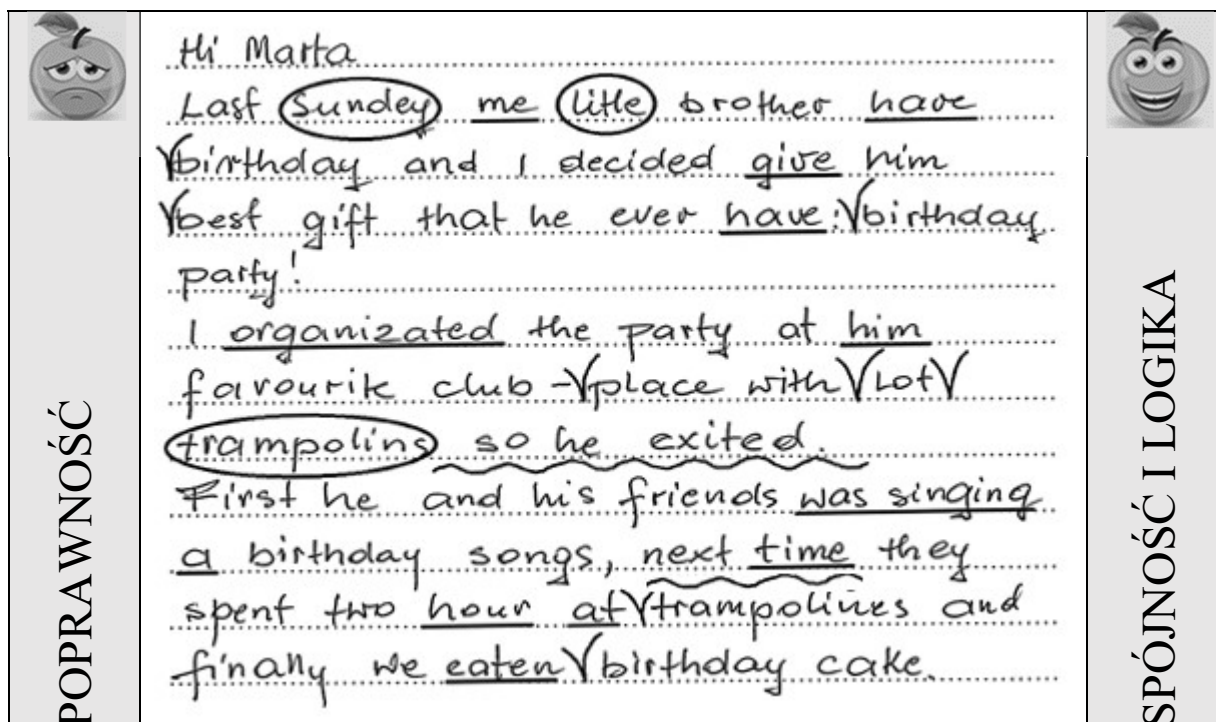 Hi Marta
Last Sundey me litle brother have
birthday and I decided give him
best gift that he ever have: birthday
party!
I organizated the party at him
favourite club - place with lot
trampolins so he exited.
First he and his friends was singing
a birthday songs, next time they
spent two hour at trampolines and
finally we eaten birthday cake.
POPRAWNOŚĆ
SPÓJNOŚĆ I LOGIKA